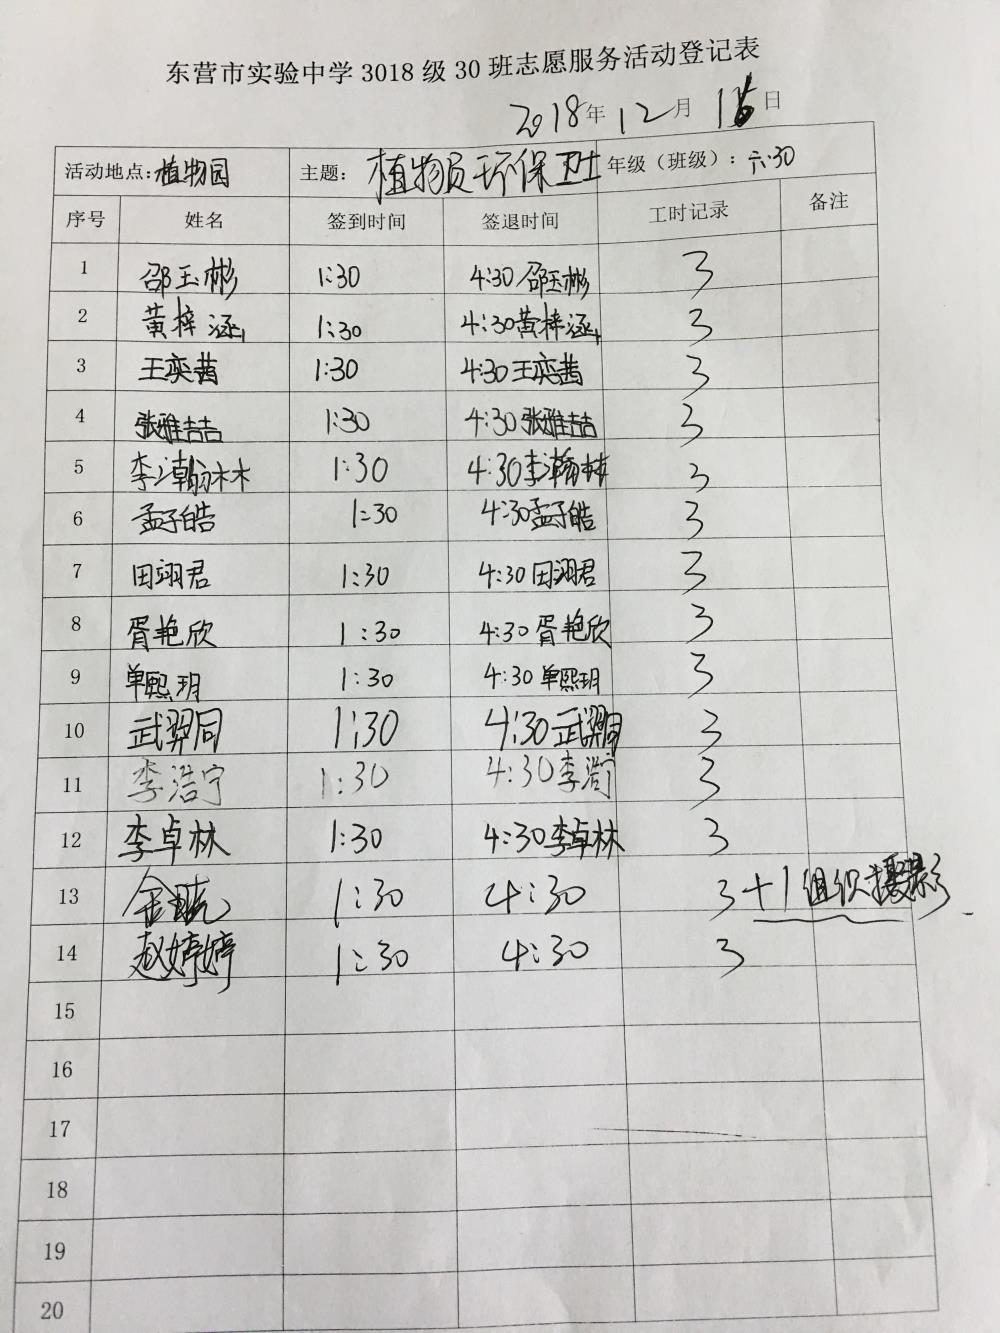 东营市实验中学 3018 级 30 班志愿服务活动登记表
2018年 12 月 日
活动地点: 植物园 主题: 植物员环保卫士 年级（班级）: 六.30
序号 姓名 签到时间 签退时间 工时记录 备注
1 邵玉彬 1:30 4:30 邵玉彬 3
2 黄梓涵 1:30 4:30 黄梓涵 3
3 王奕茜 1:30 4:30 王奕茜 3
4 张雅喆 1:30 4:30 张雅喆 3
5 李瀚林 1:30 4:30 李瀚林 3
6 孟子皓 1:30 4:30 孟子皓 3
7 田翊君 1:30 4:30 田翊君 3
8 胥艳欣 1:30 4:30 胥艳欣 3
9 单熙玥 1:30 4:30 单熙玥 3
10 武羿同 1:30 4:30 武羿同 3
11 李浩宁 1:30 4:30 李浩宁 3
12 李卓林 1:30 4:30 李卓林 3
13 1:30 4:30 3+1组织摄影
14 赵婷婷 1:30 4:30 3
15
16
17
18
19
20